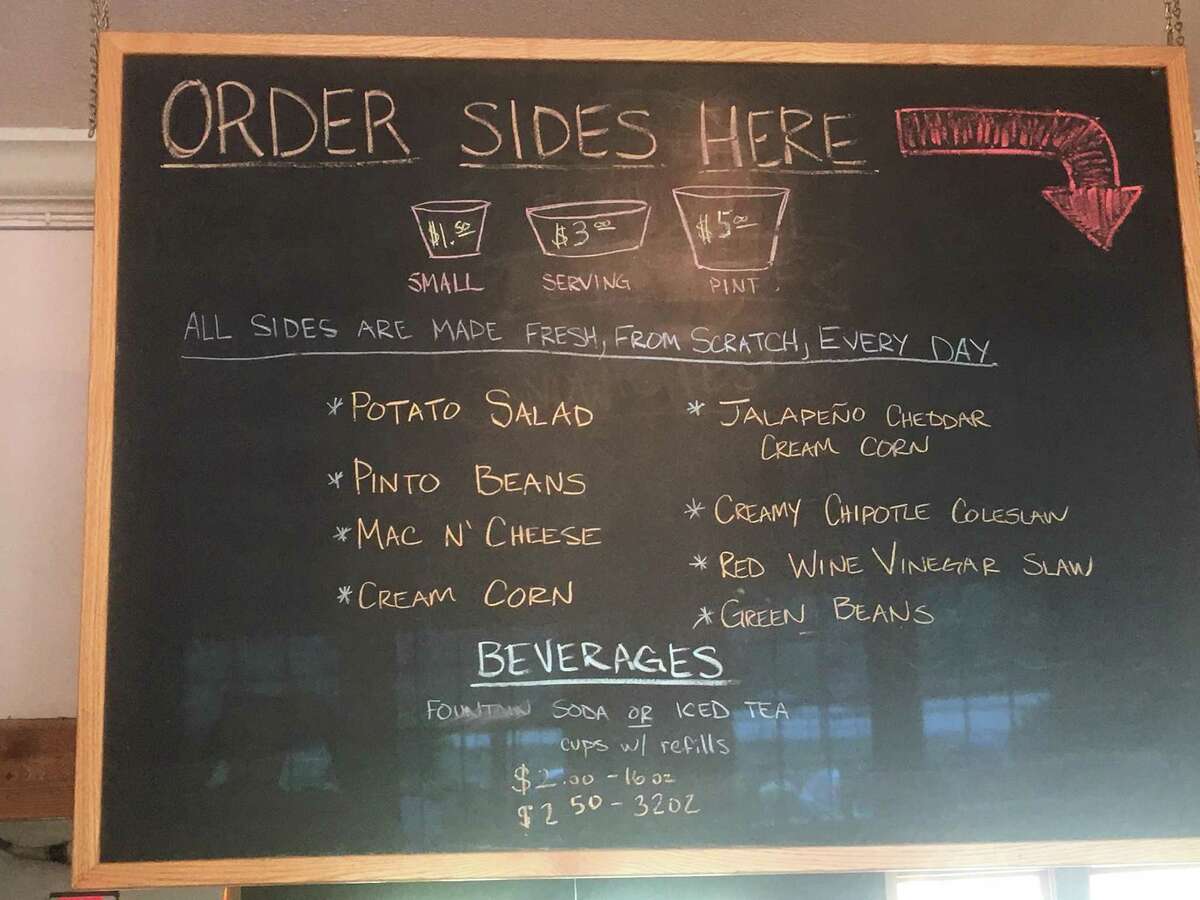 ORDER SIDES HERE
$1.50 $3.00 $5.00
SMALL SERVING PINT
ALL SIDES ARE MADE FRESH, FROM SCRATCH, EVERY DAY
* POTATO SALAD
* PINTO BEANS
* MAC N' CHEESE
* CREAM CORN
* JALAPEÑO CHEDDAR
CREAM CORN
* CREAMY CHIPOTLE COLESLAW
* RED WINE VINEGAR SLAW
* GREEN BEANS
BEVERAGES
FOUNTAIN SODA OR ICED TEA
CUPS w/ refills
$2.00 - 16oz
$2 50 - 32oz